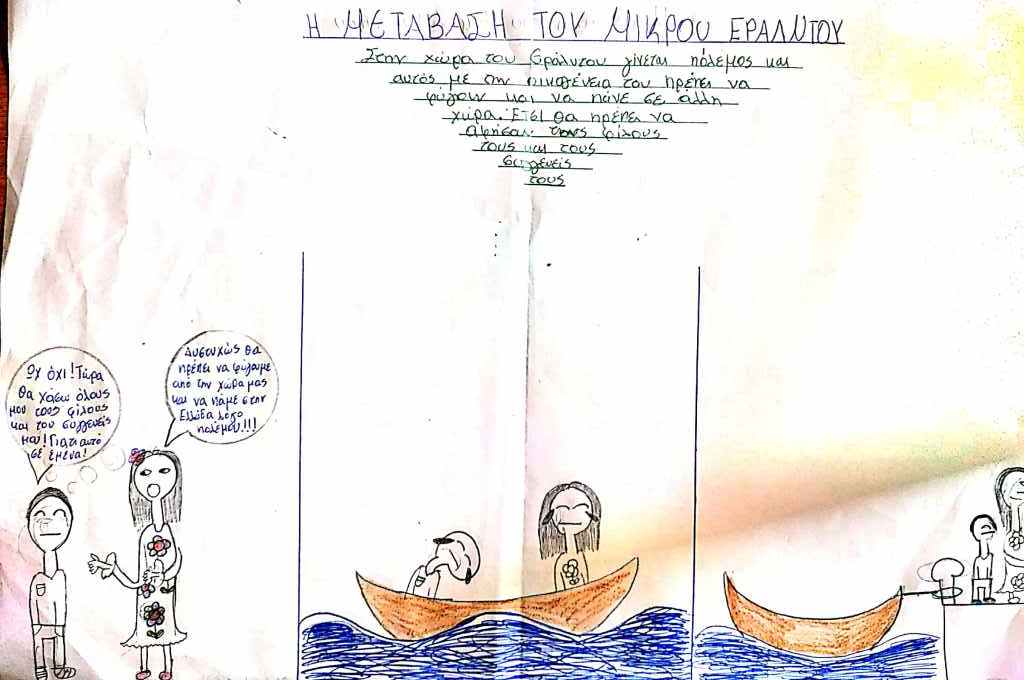 Η ΜΕΤΑΒΑΣΗ ΤΟΥ ΜΙΚΡΟΥ ΕΡΑΛΝΤΟΥ
Στην χώρα του Εράλντου γίνεται πόλεμος και
αυτός με την οικογένεια του πρέπει να
φύγουν και να πάνε σε άλλη
χώρα. Έτσι θα πρέπει να
αφήσαι τους φίλους
τους και τους
συγγενείς
τους
Ωχ όχι! Τώρα
θα χάσω όλους
μου τους φίλους
και του συγγενείς
μου! Γιατι αυτό
σε εμένα!
Δυστυχώς θα
πρέπει να φύγουμε
από την χώρα μας
και να πάμε στην
Ελλάδα λόγο
πολέμου!!!